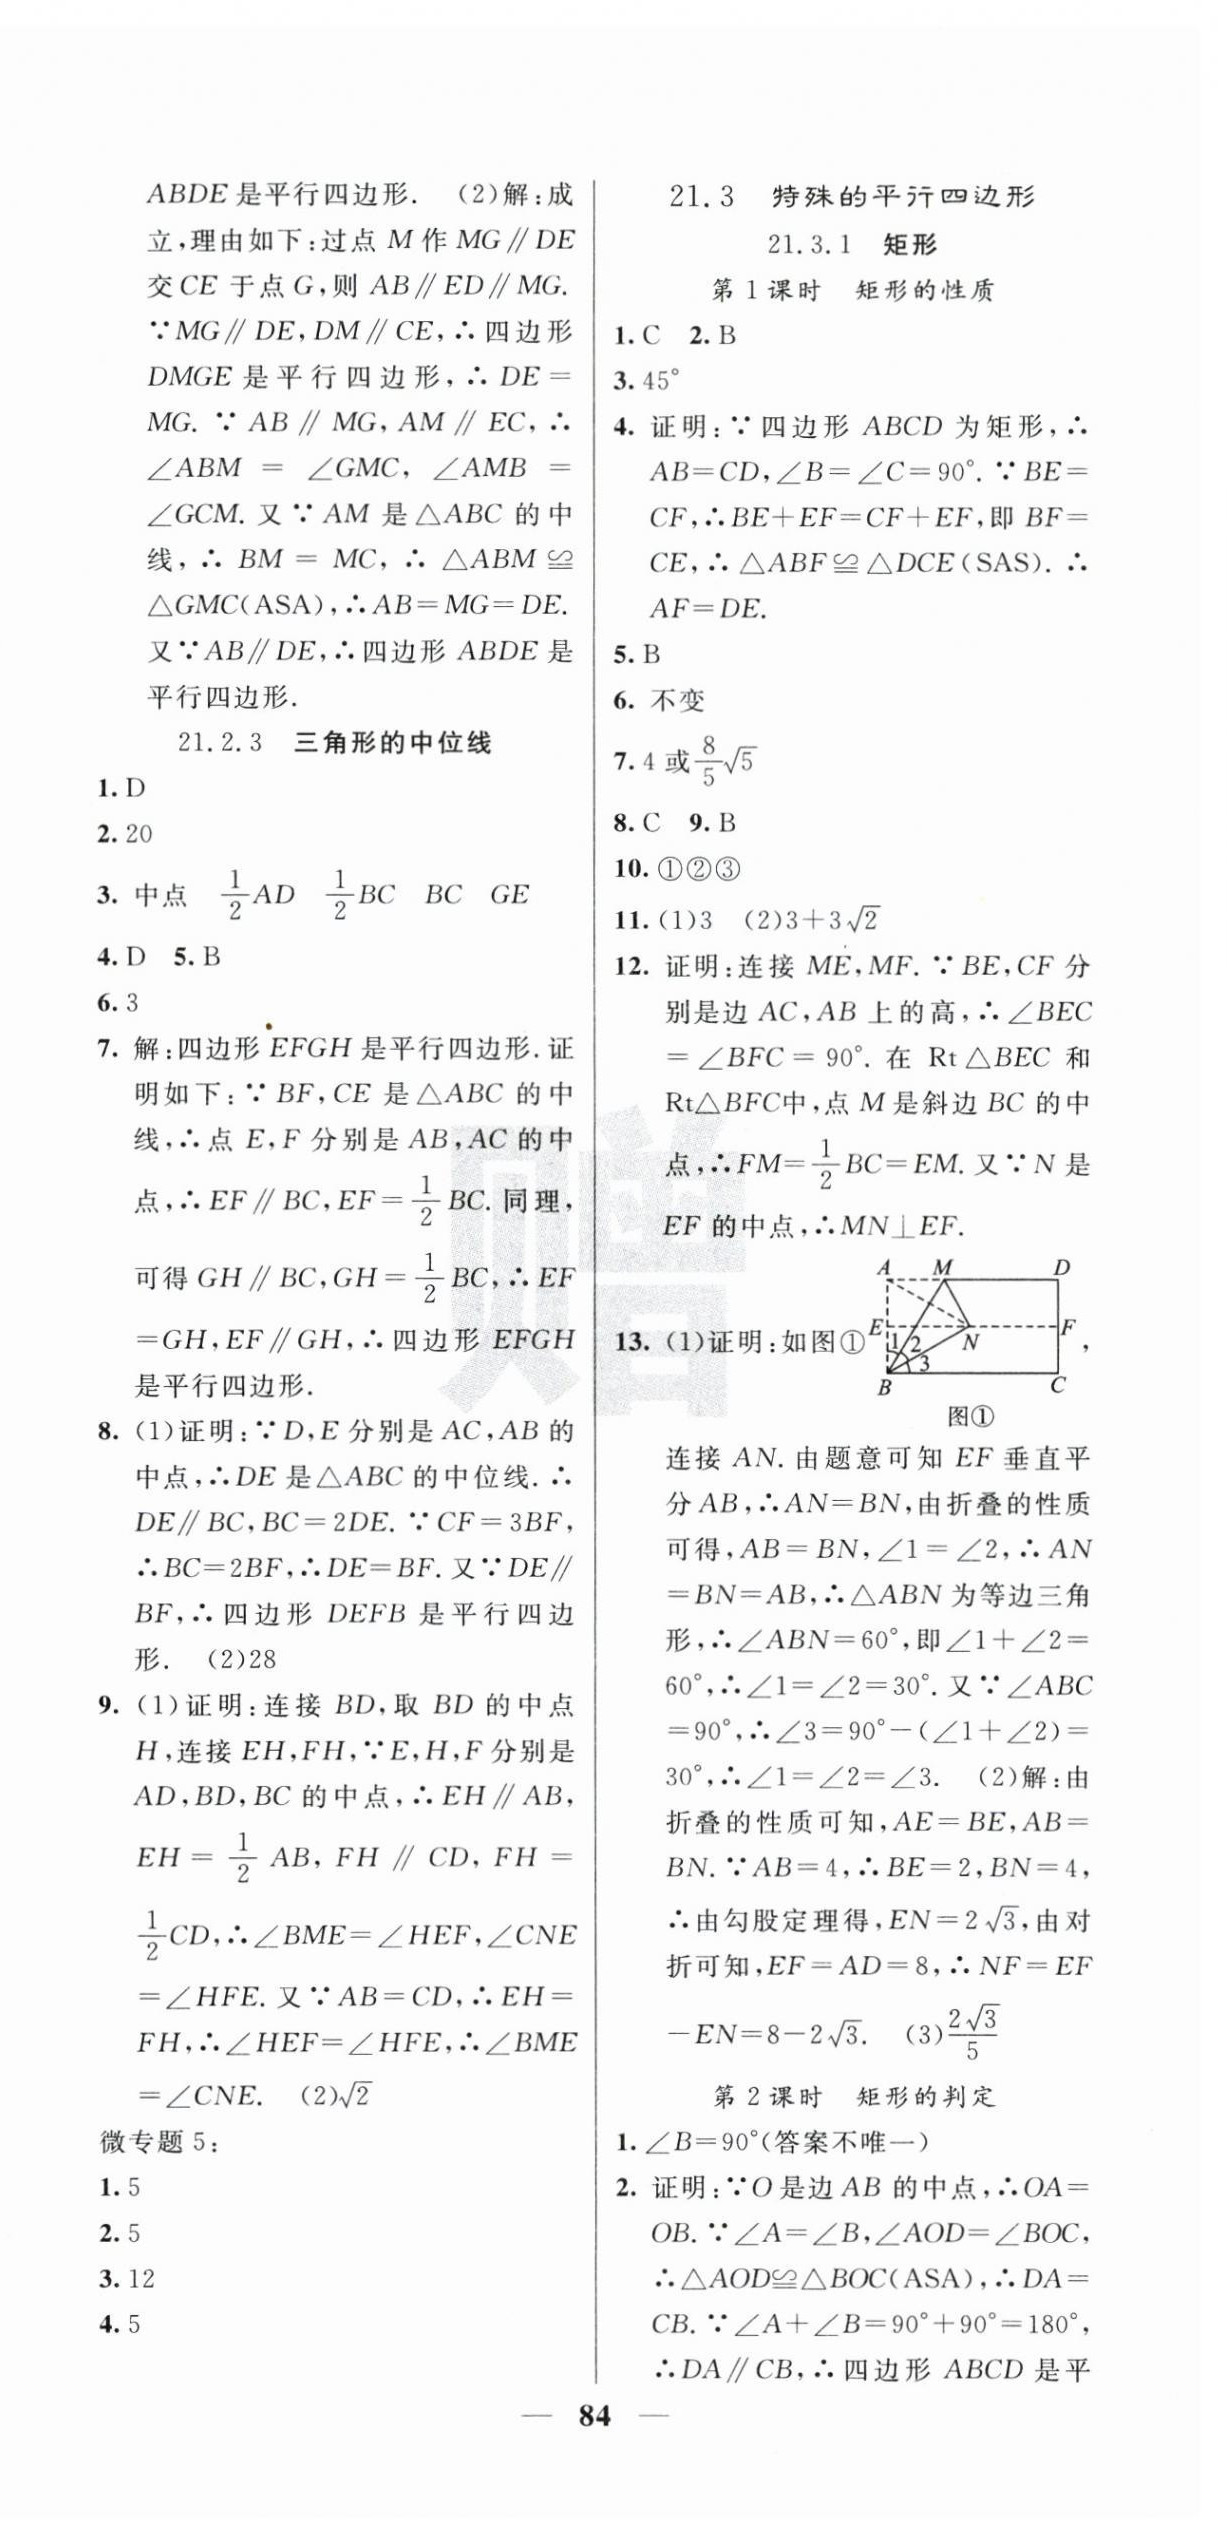 ABDE 是平行四边形. (2)解:成
立,理由如下:过点 M 作 MG∥DE
交 CE 于点 G,则 AB∥ED∥MG.
∵MG∥DE,DM∥CE,∴四边形
DMGE 是平行四边形,∴DE=
MG. ∵AB∥MG,AM∥EC,∴
∠ABM=∠GMC,∠AMB=
∠GCM. 又∵AM 是△ABC 的中
线,∴BM=MC,∴△ABM≌
△GMC(ASA),∴AB=MG=DE.
又∵AB∥DE,∴四边形 ABDE 是
平行四边形.
21.2.3 三角形的中位线
1. D
2. 20
3. 中点 1/2 AD 1/2 BC BC GE
4. D 5. B
6. 3
7. 解:四边形 EFGH 是平行四边形.证
明如下:∵BF,CE 是△ABC 的中
线,∴点 E,F 分别是 AB,AC 的中
点,∴EF∥BC,EF=1/2 BC. 同理,
可得 GH∥BC,GH=1/2 BC,∴EF
=GH,EF∥GH,∴四边形 EFGH
是平行四边形.
8. (1)证明:∵D,E 分别是 AC,AB 的
中点,∴DE 是△ABC 的中位线.∴
DE∥BC,BC=2DE. ∵CF=3BF,
∴BC=2BF,∴DE=BF. 又∵DE∥
BF,∴四边形 DEFB 是平行四边
形. (2)28
9. (1)证明:连接 BD,取 BD 的中点
H,连接 EH,FH,∵E,H,F 分别是
AD,BD,BC 的中点,∴EH∥AB,
EH=1/2 AB,FH∥CD,FH=
1/2 CD,∴∠BME=∠HEF,∠CNE
=∠HFE. 又∵AB=CD,∴EH=
FH,∴∠HEF=∠HFE,∴∠BME
=∠CNE. (2)√2
微专题 5:
1. 5
2. 5
3. 12
4. 5
21.3 特殊的平行四边形
21.3.1 矩形
第 1 课时 矩形的性质
1. C 2. B
3. 45°
4. 证明:∵四边形 ABCD 为矩形,∴
AB=CD,∠B=∠C=90°. ∵BE=
CF,∴BE+EF=CF+EF,即 BF=
CE,∴△ABF≌△DCE(SAS). ∴
AF=DE.
5. B
6. 不变
7. 4 或 8/5 √5
8. C 9. B
10. ①②③
11. (1)3 (2)3+3√2
12. 证明:连接 ME,MF. ∵BE,CF 分
别是边 AC,AB 上的高,∴∠BEC
=∠BFC=90°. 在 Rt△BEC 和
Rt△BFC中,点 M 是斜边 BC 的中
点,∴FM=1/2 BC=EM. 又∵N 是
EF 的中点,∴MN⊥EF.
A M D
13. (1)证明:如图① E 1 2 N F ,
3
B C
图①
连接 AN. 由题意可知 EF 垂直平
分 AB,∴AN=BN,由折叠的性质
可得,AB=BN,∠1=∠2,∴AN
=BN=AB,∴△ABN 为等边三角
形,∴∠ABN=60°,即∠1+∠2=
60°,∴∠1=∠2=30°. 又∵∠ABC
=90°,∴∠3=90°-(∠1+∠2)=
30°,∴∠1=∠2=∠3. (2)解:由
折叠的性质可知,AE=BE,AB=
BN. ∵AB=4,∴BE=2,BN=4,
∴由勾股定理得,EN=2√3,由对
折可知,EF=AD=8,∴NF=EF
-EN=8-2√3. (3)2√3/5
第 2 课时 矩形的判定
1. ∠B=90°(答案不唯一)
2. 证明:∵O 是边 AB 的中点,∴OA=
OB. ∵∠A=∠B,∠AOD=∠BOC,
∴△AOD≌△BOC(ASA),∴DA=
CB. ∵∠A+∠B=90°+90°=180°,
∴DA∥CB,∴四边形 ABCD 是平
— 84 —
赠